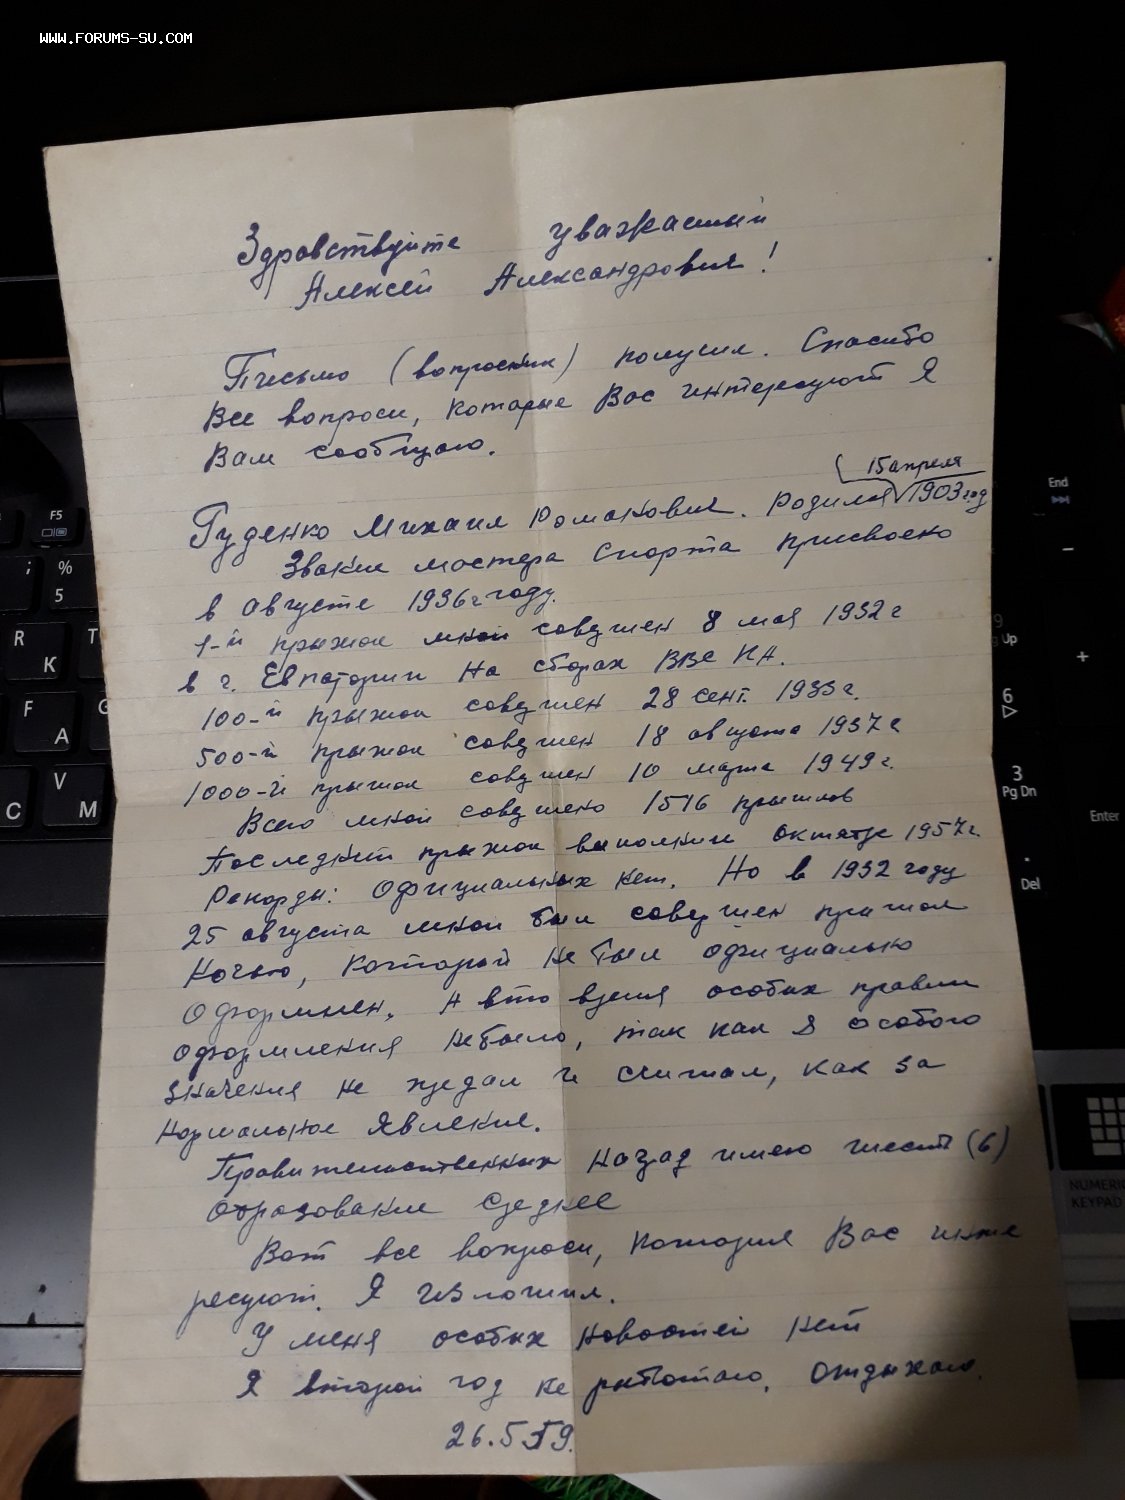 WWW.FORUMS-SU.COM
Здравствуйте уважаемый
Алексей Александрович!
Письмо (вопросник) получил. Спасибо
Все вопросы, которые Вас интересуют я
Вам сообщаю.
15 апреля
Гуденко Михаил Романович. родился 1903 год
Звание мастера спорта присвоено
в августе 1936г году.
1-й прыжок мной совершен 8 мая 1932 г
в г. Евпатории на сборах ВВС КА.
100-й прыжок совершен 28 сент. 1933 г.
500-й прыжок совершен 18 августа 1937 г
1000-й прыжок совершен 10 марта 1949 г.
Всего мной совершено 1516 прыжков
Последний прыжок выполнил октябре 1957 г.
Рекорды: Официальных нет. Но в 1932 году
25 августа мной был совершен прыжок
ночью, который не был официально
оформлен. А в то время особых правил
оформления не было, так как я особого
значения не придал и считал, как за
нормальное явление.
Правительственных наград имею шесть (6)
Образование среднее
Вот все вопросы, которые Вас инте
ресуют. Я изложил.
У меня особых новостей нет
Я второй год не работаю. Отдыхаю.
26.5.59.
End
F5
%
5
;
R
К
T
F
А
G
C
V
М
9
Pg Up
6
3
Pg Dn
Enter
.
Del
+
−
NUMERIC
KEYPAD